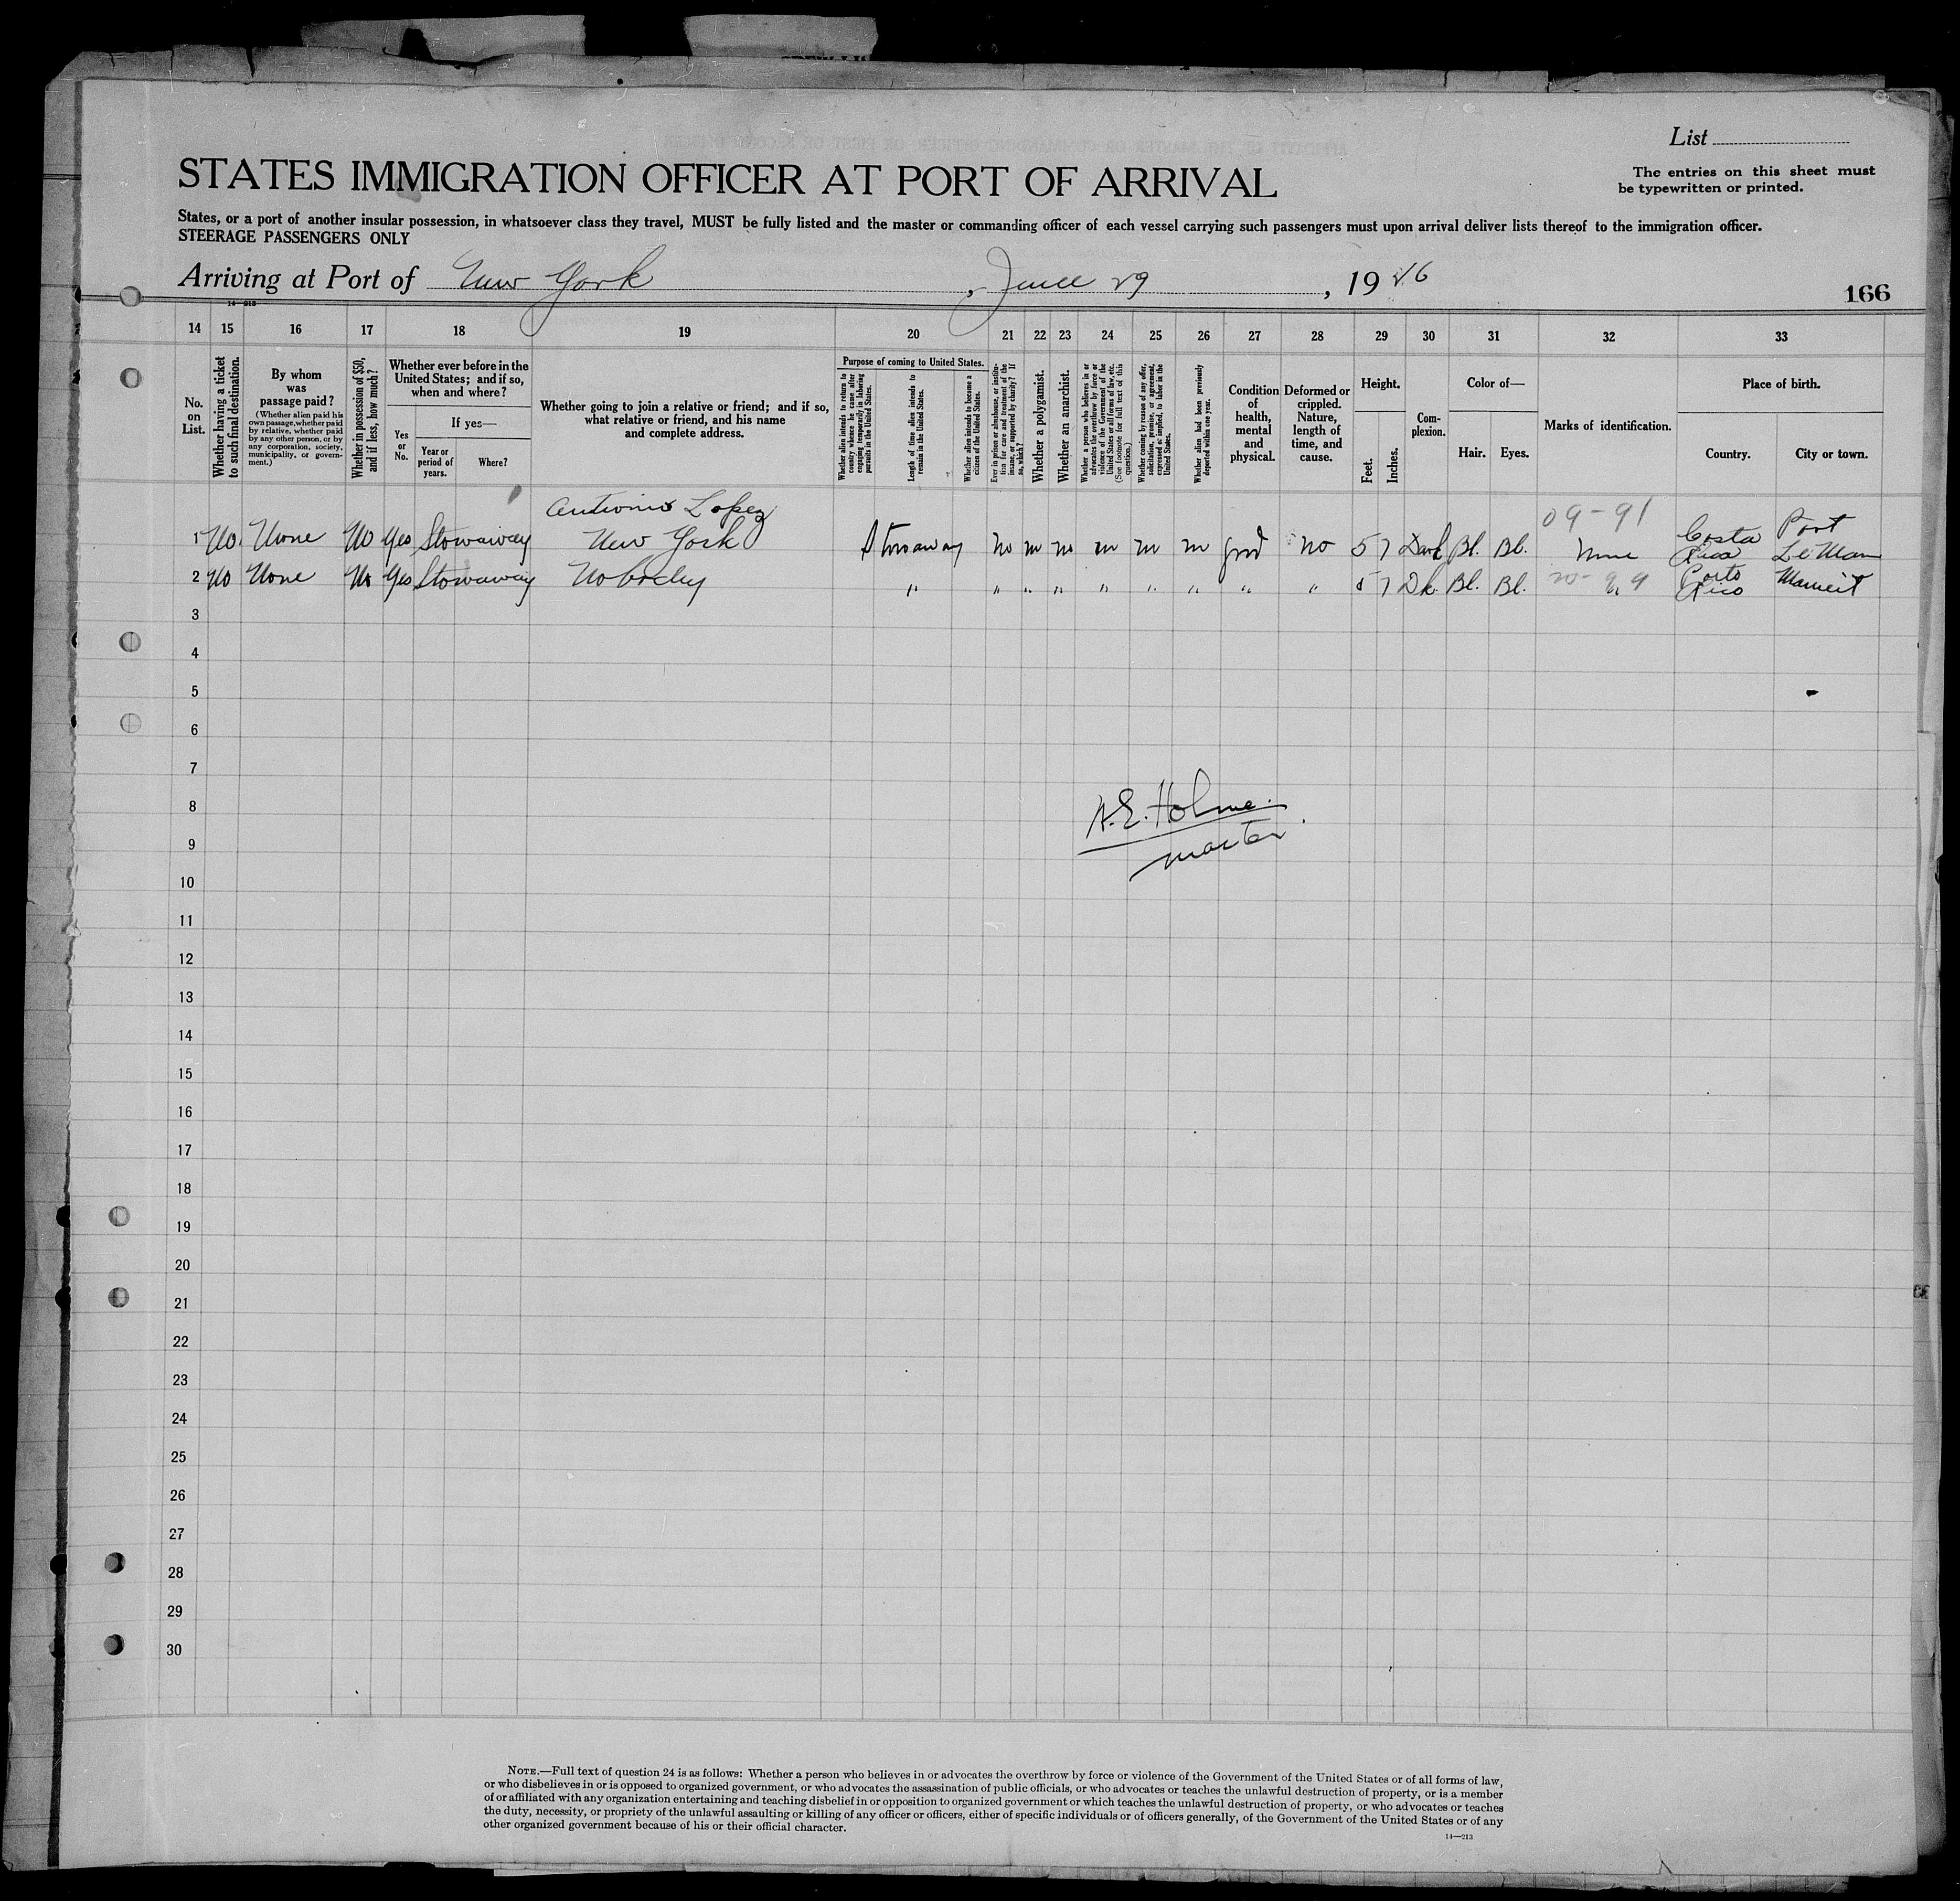 List
STATES IMMIGRATION OFFICER AT PORT OF ARRIVAL
The entries on this sheet must
be typewritten or printed.
States, or a port of another insular possession, in whatsoever class they travel, MUST be fully listed and the master or commanding officer of each vessel carrying such passengers must upon arrival deliver lists thereof to the immigration officer.
STEERAGE PASSENGERS ONLY
Arriving at Port of New York, June 29, 19
166
14—213
14 15 16 17 18 19 20 21 22 23 24 25 26 27 28 29 30 31 32 33
No. on List.
Whether having a ticket to such final destination.
By whom was passage paid?
(Whether alien paid his own passage, whether paid by relative, whether paid by any other person, or by any corporation, society, municipality, or government.)
Whether in possession of $50, and if less, how much?
Whether ever before in the United States; and if so, when and where?
If yes—
Yes or No.
Year or period of years.
Where?
Whether going to join a relative or friend; and if so, what relative or friend, and his name and complete address.
Purpose of coming to United States.
Whether alien intends to return to country whence he came after engaging temporarily in laboring pursuits in the United States.
Length of time alien intends to remain in the United States.
Whether alien intends to become a citizen of the United States.
Ever in prison or almshouse, or institution for care and treatment of the insane, or supported by charity? If so, which?
Whether a polygamist.
Whether an anarchist.
Whether a person who believes in or advocates the overthrow by force or violence of the Government of the United States or all forms of law, etc. (See footnote for full text of this question.)
Whether coming by reason of any offer, solicitation, promise, or agreement, expressed or implied, to labor in the United States.
Whether alien had been previously deported within one year.
Condition of health, mental and physical.
Deformed or crippled. Nature, length of time, and cause.
Height.
Feet.
Inches.
Complexion.
Color of—
Hair.
Eyes.
Marks of identification.
Place of birth.
Country.
City or town.
Antonio Lopez
09-91
1 No None No Yes Stowaway New York Stowaway no no no no no no good no 5 7 Dark Bl. Bl. None Costa Rica Port
2 No None No Yes Stowaway Nobody " " " " " " " " " 5 7 Dk. Bl. Bl. " Porto Rico
3
4
5
6
7
8
A.E. Holme
9
master
10
11
12
13
14
15
16
17
18
19
20
21
22
23
24
25
26
27
28
29
30
NOTE.—Full text of question 24 is as follows: Whether a person who believes in or advocates the overthrow by force or violence of the Government of the United States or of all forms of law,
or who disbelieves in or is opposed to organized government, or who advocates the assassination of public officials, or who advocates or teaches the unlawful destruction of property, or is a member
of or affiliated with any organization entertaining and teaching disbelief in or opposition to organized government or which teaches the unlawful destruction of property, or who advocates or teaches
the duty, necessity, or propriety of the unlawful assaulting or killing of any officer or officers, either of specific individuals or of officers generally, of the Government of the United States or of any
other organized government because of his or their official character.
14—213